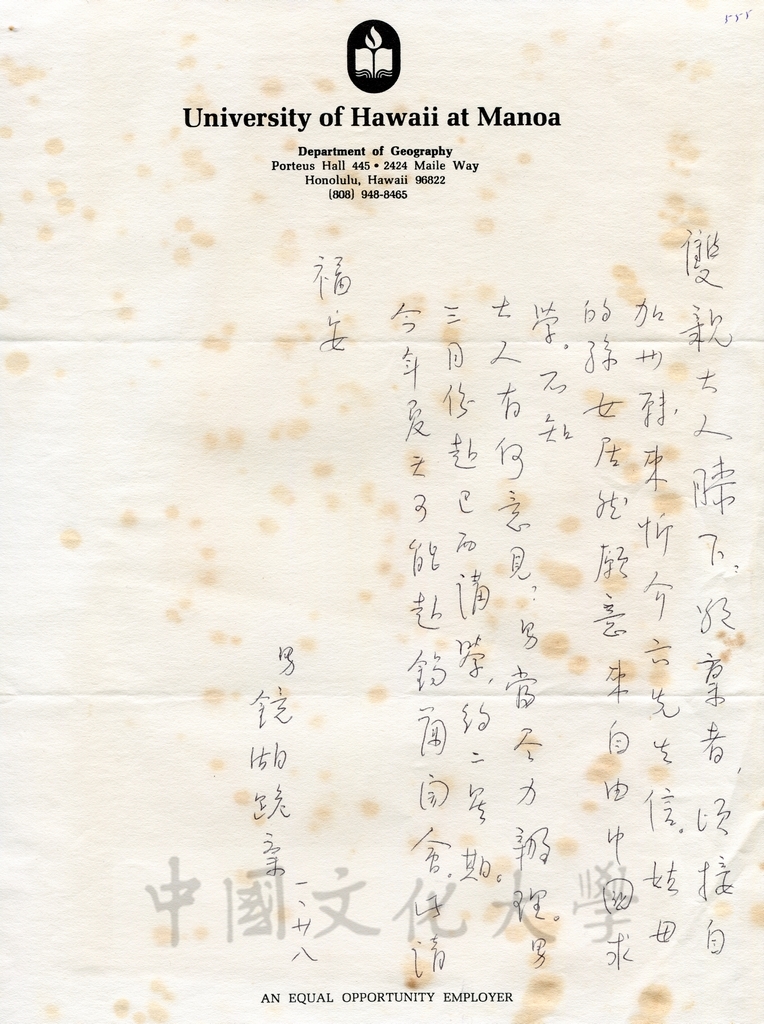 555
University of Hawaii at Manoa
Department of Geography
Porteus Hall 445 • 2424 Maile Way
Honolulu, Hawaii 96822
(808) 948-8465
雙親大人膝下:敬稟者,頃接自
加州轉來忻介六先生信。姑母
的孫女居然願意來自由中國求
學。不知
大人有何意見?男當尽力辦理。男
三月份赴巴西講學,約二星期。
今年夏天可能赴錫蘭開會。此請
福安
男
鏡湖跪稟
一、廿八
中國文化大學
AN EQUAL OPPORTUNITY EMPLOYER